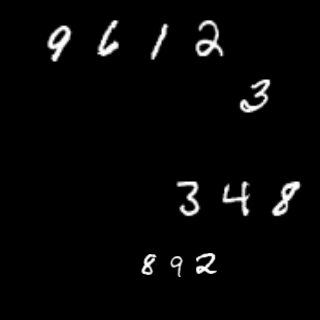 9612
3
348
892